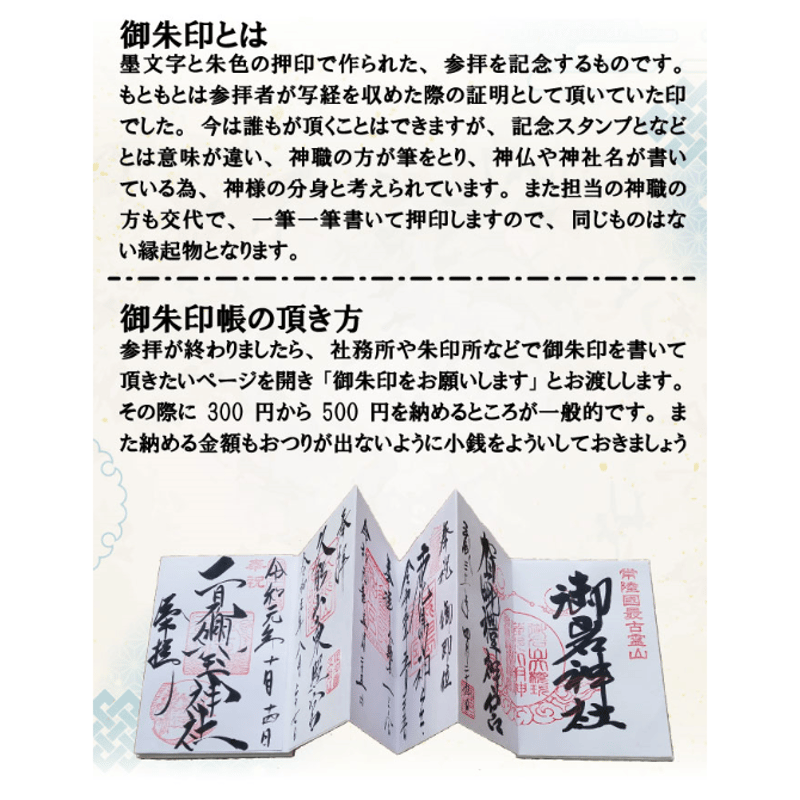 御朱印とは
墨文字と朱色の押印で作られた、参拝を記念するものです。
もともとは参拝者が写経を収めた際の証明として頂いていた印
でした。今は誰もが頂くことはできますが、記念スタンプとなど
とは意味が違い、神職の方が筆をとり、神仏や神社名が書い
ている為、神様の分身と考えられています。また担当の神職の
方も交代で、一筆一筆書いて押印しますので、同じものはな
い縁起物となります。
御朱印帳の頂き方
参拝が終わりましたら、社務所や朱印所などで御朱印を書いて
頂きたいページを開き「御朱印をお願いします」とお渡しします。
その際に 300 円から 500 円を納めるところが一般的です。ま
た納める金額もおつりが出ないように小銭をよういしておきましょう
常陸國最古霊山
御岩神社
奉拝
令和元年十月十四日